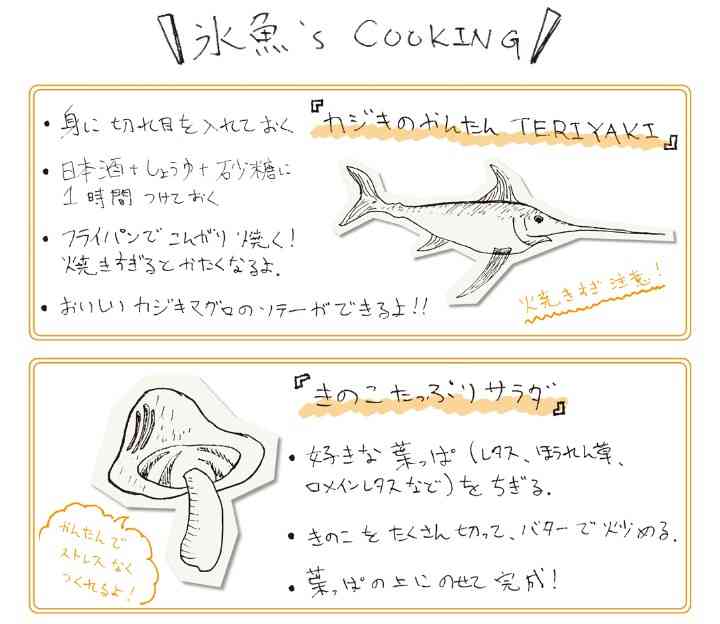 氷魚's COOKING
『カジキのかんたん TERIYAKI』
• 身に切れ目を入れておく
• 日本酒+しょうゆ+砂糖に
1時間つけておく
• フライパンでこんがり焼く!
焼きすぎるとかたくなるよ.
• おいしいカジキマグロのソテーができるよ!!
火焼きすぎ注意!
『きのこたっぷりサラダ』
• 好きな葉っぱ(レタス、ほうれん草、
ロメインレタスなど)をちぎる.
• きのこをたくさん切って、バターで炒める.
• 葉っぱの上にのせて完成!
かんたんで
ストレスなく
つくれるよ!